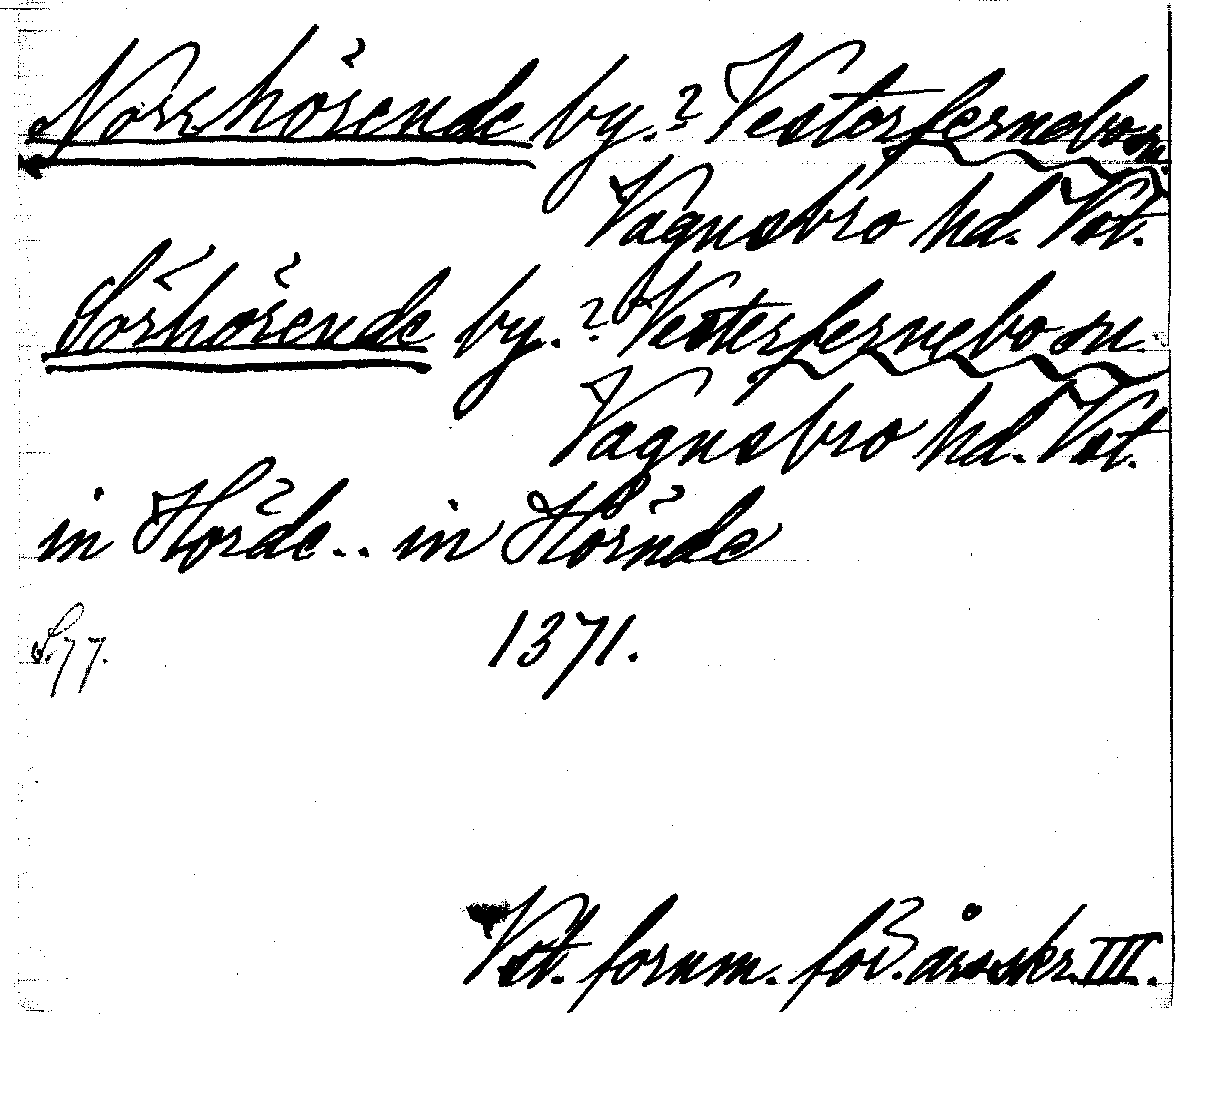 Norrhörende by. ? Vesterfernebo sn.
Vagnsbro hd. Vst.
Sörhörende by. ? Vesterfernebo sn.
Vagnsbro hd. Vst.
in Hörde.. in Hörnde
S. 77. 1371.
Vst. fornm. för. årsskr. III.